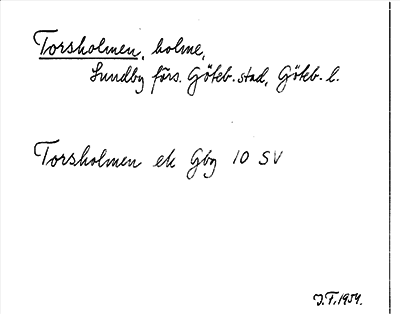 Torsholmen, holme,
Lundby förs. Göteb. stad, Göteb. l.
Torsholmen ek Gbg 10 SV
J.F. 1954.